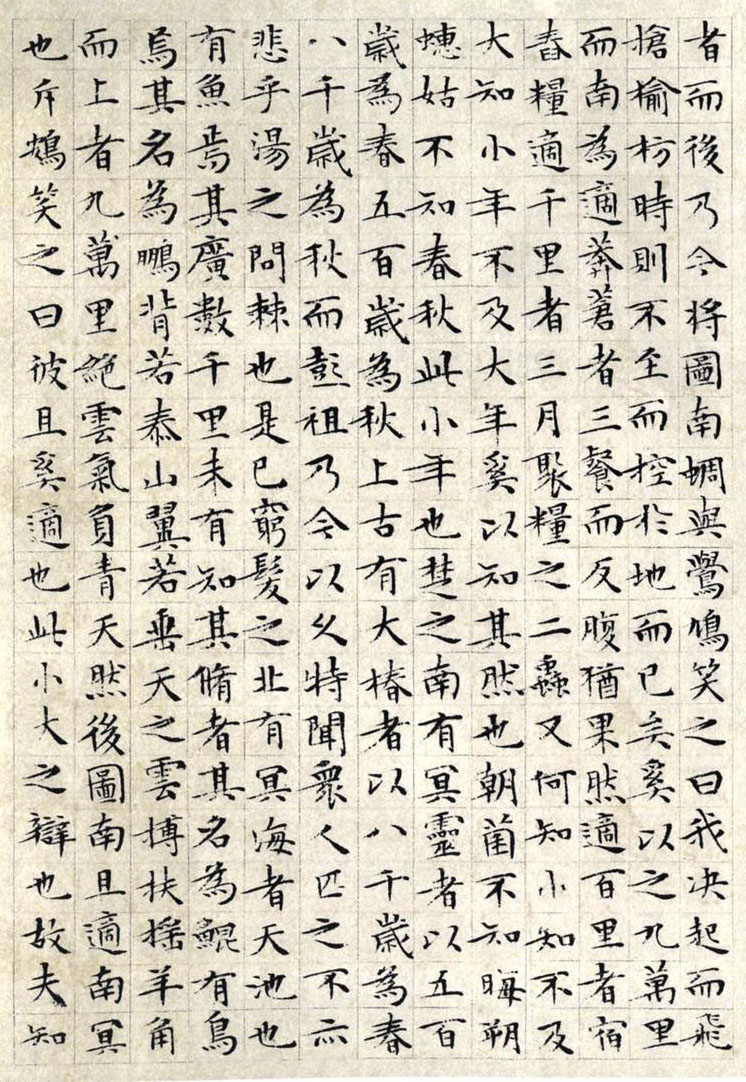 者而後乃今将圖南蜩與鷽鳩笑之曰我决起而飛
搶榆枋時則不至而控於地而已矣奚以之九萬里
而南為適莽蒼者三餐而反腹猶果然適百里者宿
舂糧適千里者三月聚糧之二蟲又何知小知不及
大知小年不及大年奚以知其然也朝菌不知晦朔
蟪姑不知春秋此小年也楚之南有冥靈者以五百
歲為春五百歲為秋上古有大椿者以八千歲為春
八千歲為秋而彭祖乃今以久特聞眾人匹之不亦
悲乎湯之問棘也是已窮髮之北有冥海者天池也
有魚焉其廣數千里未有知其脩者其名為鯤有鳥
焉其名為鵬背若泰山翼若垂天之雲搏扶搖羊角
而上者九萬里絕雲氣負青天然後圖南且適南冥
也斥鴳笑之曰彼且奚適也此小大之辯也故夫知